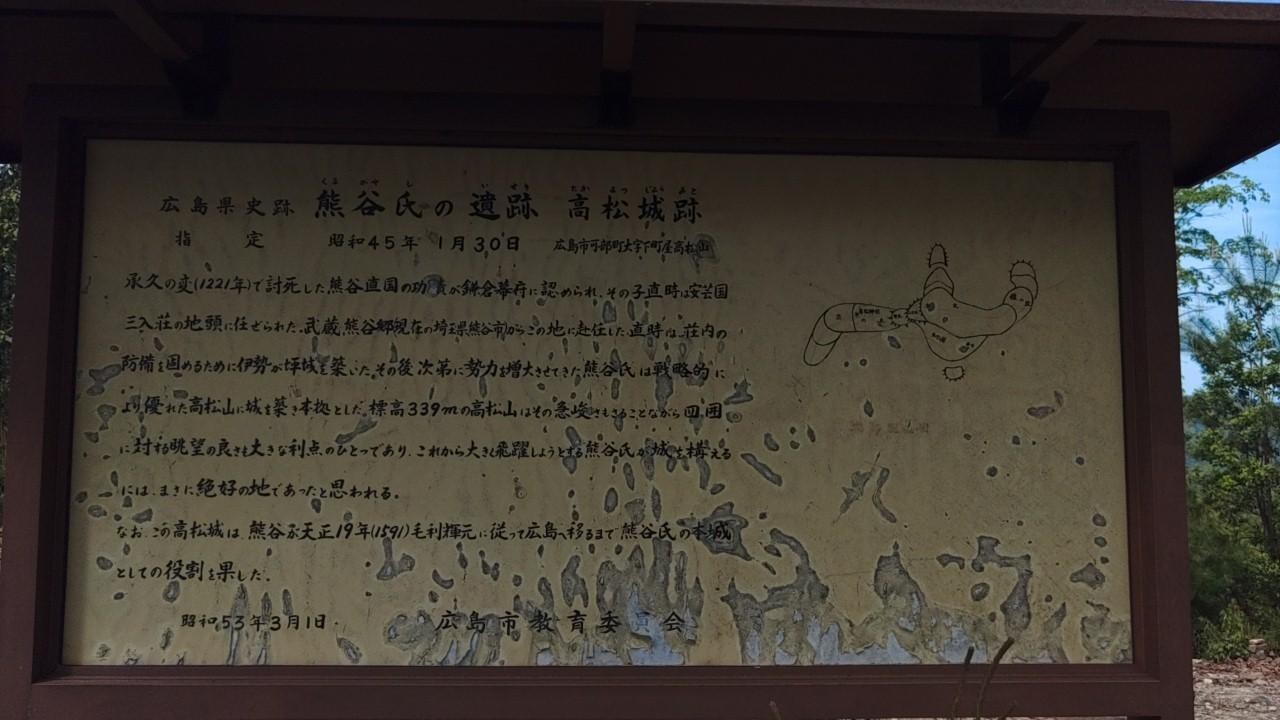 くま がや し い せき たか まつ じょう あと
広島県史跡 熊谷氏の遺跡 高松城跡
指 定 昭和45年 1月30日 広島市可部町大字下町屋高松山
承久の変(1221年)で討死した熊谷直国の功績が鎌倉幕府に認められ、その子直時は安芸国
三入荘の地頭に任ぜられた。武蔵熊谷郷(現在の埼玉県熊谷市)からこの地に赴任した直時は、荘内の
防備を固めるために伊勢が坪城を築いた。その後次第に勢力を増大させてきた熊谷氏は戦略的に
より優れた高松山に城を築き本拠とした。標高339mの高松山はその急峻さもさることながら四囲
に対する眺望の良さも大きな利点のひとつであり、これから大きく飛躍しようとする熊谷氏が城を構える
には、まさに絶好の地であったと思われる。
なお、この高松城は、熊谷氏が天正19年(1591)毛利輝元に従って広島へ移るまで熊谷氏の本城
としての役割を果した。
昭和53年3月1日 広島市教育委員会